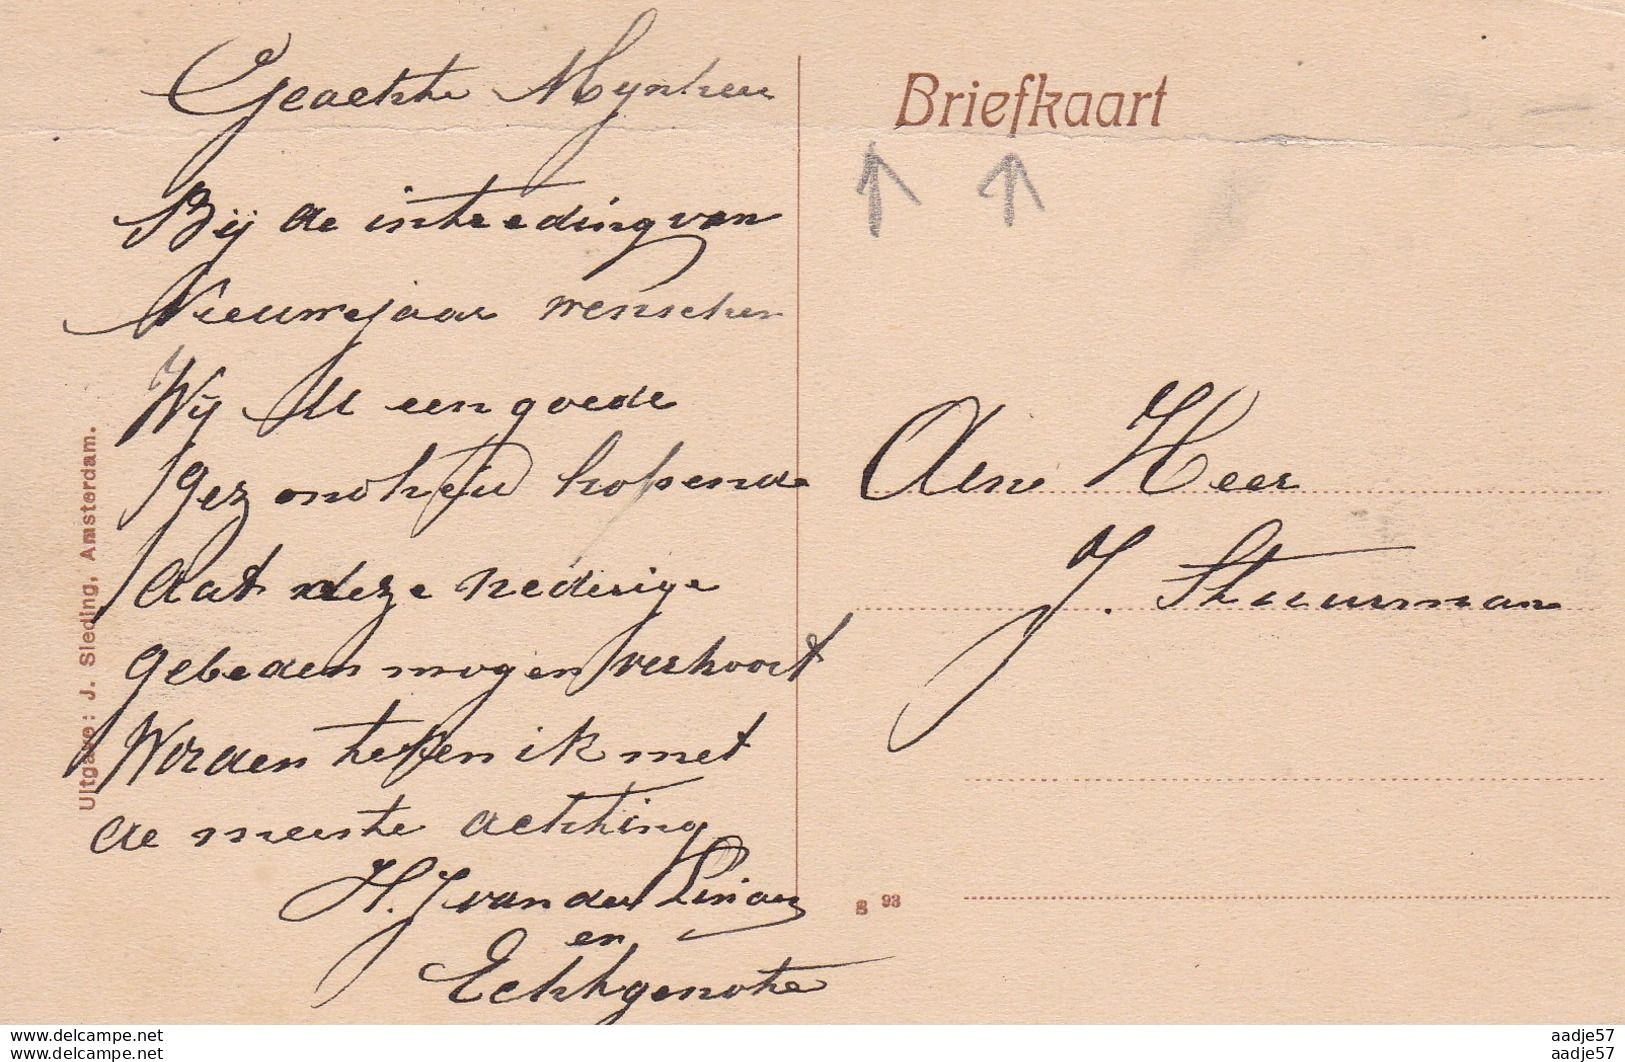 Geachte Mynheer
Bij de intreeding van
Nieuwejaar wenschen
Wij U een goede
Gezondheid hopende
dat deze nederige
gebeden mogen verhoort
Worden teken ik met
de meeste achting
H. J van der
en
Echtgenote
Uitgave: J. Sleding, Amsterdam.
Briefkaart
Aan Heer
J. Stuurman
8 93
www.delcampe.net
www.delcampe.net
aadje57
aadje57